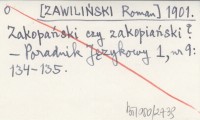 o [ZAWILIŃSKI Roman] 1901.
Zakopański czy zakopiański?
— Poradnik Językowy 1, nr 9:
134-135.